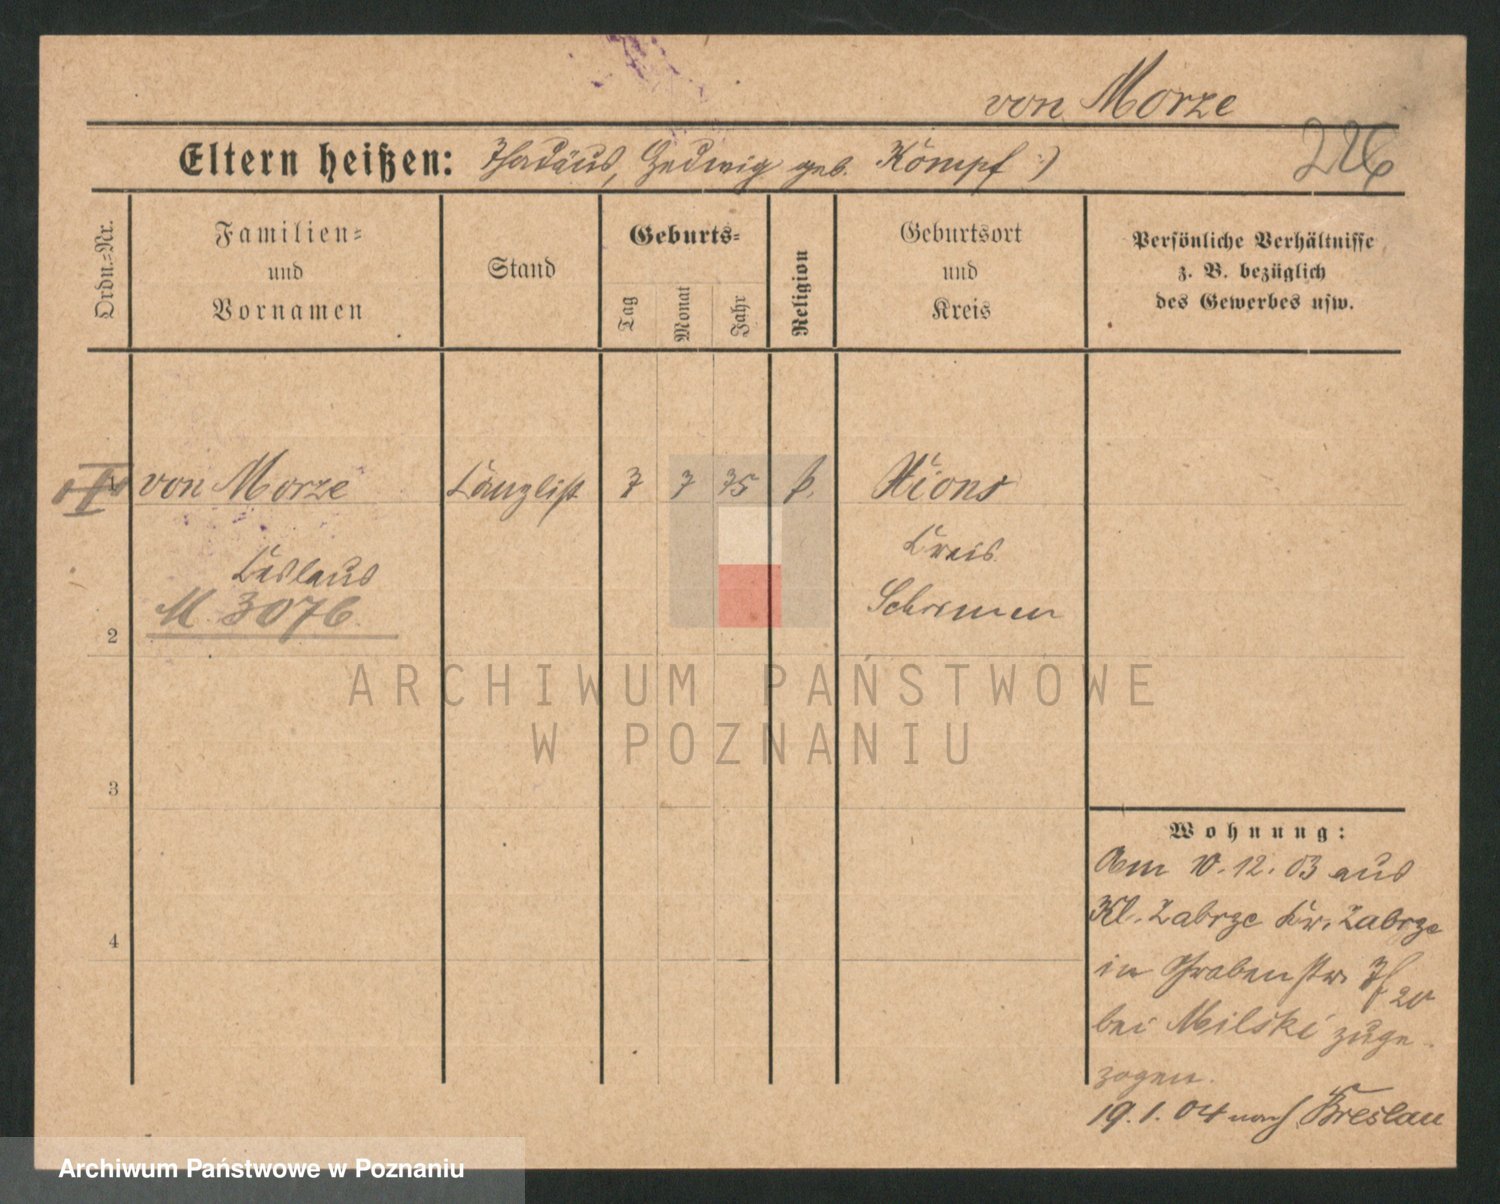 von Morze
226
Eltern heißen: Thadäus, Hedwig geb. Kömpf :)
Ordn.=Nr.
Familien=
und
Vornamen
Stand
Geburts=
Tag
Monat
Jahr
Religion
Geburtsort
und
Kreis
Persönliche Verhältnisse
z. B. bezüglich
des Gewerbes usw.
von Morze
Kanzlist
7
7
75
k.
Xions
Ceslaus
Kreis
M. 3076
Schrimm
2
ARCHIWUM PAŃSTWOWE
W POZNANIU
3
Wohnung:
Am 10.12.03 aus
Kl. Zabrze Kr. Zabrze
4
in Grabenstr. 20
bei Milski zuge-
zogen.
19.1.04 nach Breslau
Archiwum Państwowe w Poznaniu